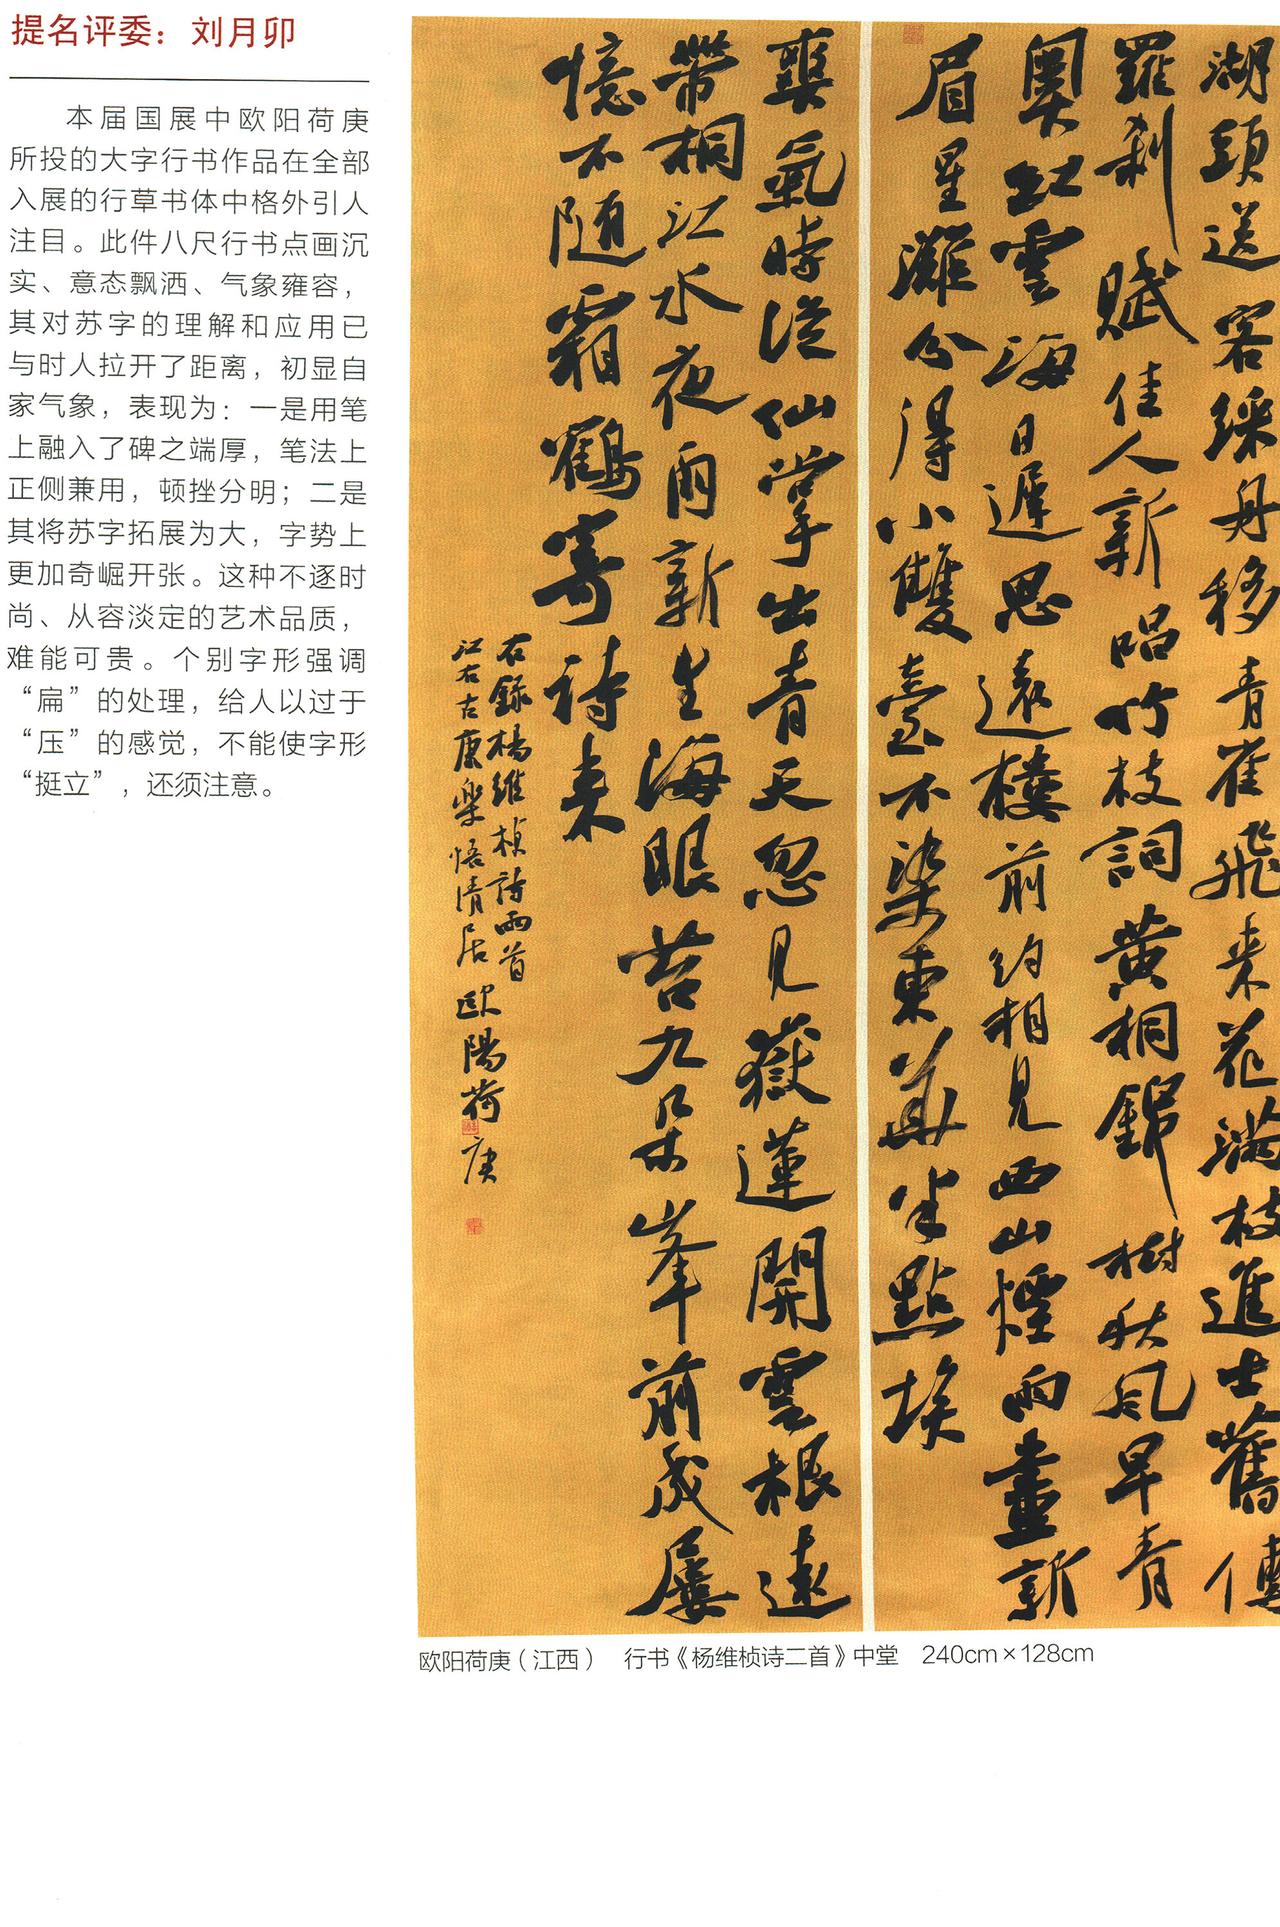 提名评委：刘月卯
本届国展中欧阳荷庚
所投的大字行书作品在全部
入展的行草书体中格外引人
注目。此件八尺行书点画沉
实、意态飘洒、气象雍容，
其对苏字的理解和应用已
与时人拉开了距离，初显自
家气象，表现为：一是用笔
上融入了碑之端厚，笔法上
正侧兼用，顿挫分明；二是
其将苏字拓展为大，字势上
更加奇崛开张。这种不逐时
尚、从容淡定的艺术品质，
难能可贵。个别字形强调
“扁”的处理，给人以过于
“压”的感觉，不能使字形
“挺立”，还须注意。
湖頭送客綵舟移青雀飛来花滿枝進士舊傳
羅刹賦佳人新唱竹枝詞黄桐錦樹秋风早青
奧紅雲海日遲思遠楼前约相見西山煙雨畫新
眉星灘分得小雙臺不染東華半點埃
爽氣時從仙掌出青天忽見嶽蓮開雲根遠
帶桐江水夜雨新生海眼苔九朵峯前成屢
憶不随霜鶴寄詩来
右錄楊維楨詩兩首
江右古康樂悟清居歐陽荷庚
欧阳荷庚（江西）　行书《杨维桢诗二首》中堂　240cm×128cm